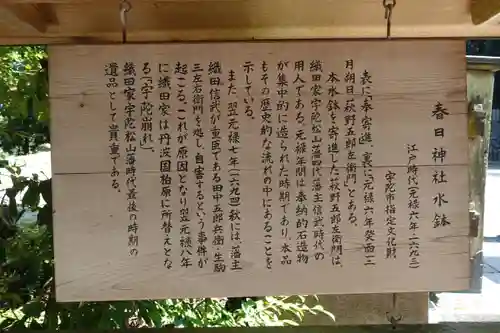 春日神社水鉢
江戸時代(元禄六年・一六九三)
宇陀市指定文化財
表に「奉寄進」、裏に「元禄六年癸酉二
月朔日萩野五郎左衛門」とある。
本水鉢を寄進した萩野五郎左衛門は、
織田家宇陀松山藩四代藩主信武時代の
用人である。元禄年間は奉納的石造物
が集中的に造られた時期であり、本品
もその歴史的な流れの中にあることを
示している。
また、翌元禄七年(一六九四)秋には、藩主
織田信武が重臣である田中五郎兵衛・生駒
三左衛門を処し、自害するという事件が
起こる。これが原因となり翌元禄八年
に織田家は丹波国柏原に所替えとな
る(「宇陀崩れ」)。
織田家宇陀松山藩時代最後の時期の
遺品として貴重である。